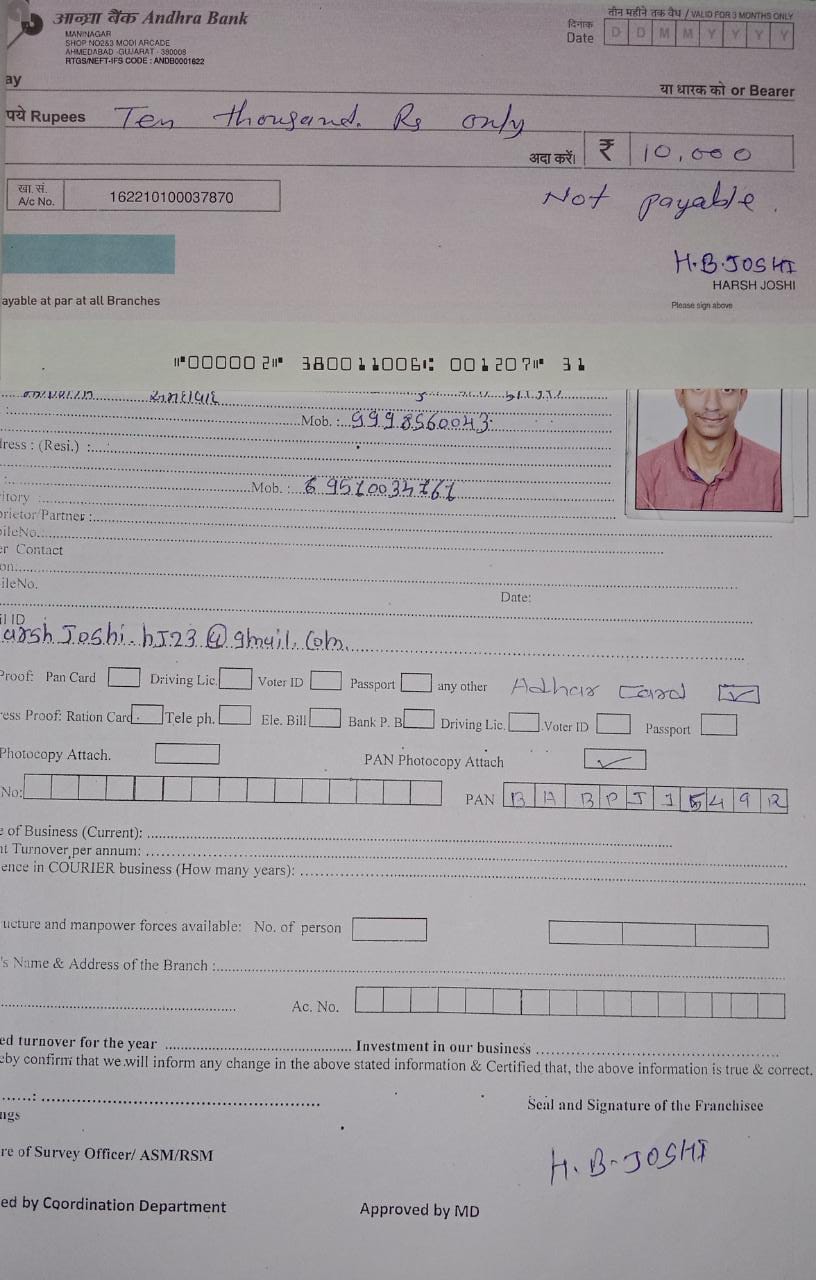 आन्ध्रा बैंक Andhra Bank
MANINAGAR
SHOP NO263 MODI ARCADE
AHMEDABAD -GUJARAT - 380008
RTGS/NEFT-IFS CODE : ANDB0001622
तीन महीने तक वैध / VALID FOR 3 MONTHS ONLY
दिनांक
Date D D M M Y Y Y Y
ay
या धारक को or Bearer
पये Rupees Ten thousand. Rs only
अदा करें। ₹ 10,000
खा. सं.
A/c No. 162210100037870
Not payable.
H.B.JOSHI
HARSH JOSHI
ayable at par at all Branches
Please sign above
⑈000002⑈ 380011006⑆ 001207⑈ 31
Mob. : 9998560043
ress : (Resi.) :
Mob. :
itory :
rietor/Partner :
ileNo.
er Contact
on
ileNo.
Date:
il ID
arsh Joshi.hJ23@gmail.com.
Proof: Pan Card Driving Lic. Voter ID Passport any other Adhar Card
ess Proof: Ration Card Tele ph. Ele. Bill Bank P. B Driving Lic. Voter ID Passport
Photocopy Attach. PAN Photocopy Attach
No: PAN
e of Business (Current):
nt Turnover per annum:
ence in COURIER business (How many years):
ucture and manpower forces available: No. of person
's Name & Address of the Branch :
Ac. No.
ed turnover for the year Investment in our business
eby confirm that we will inform any change in the above stated information & Certified that, the above information is true & correct.
Seal and Signature of the Franchisee
ngs
re of Survey Officer/ ASM/RSM
H.B-JOSHI
ed by Coordination Department Approved by MD